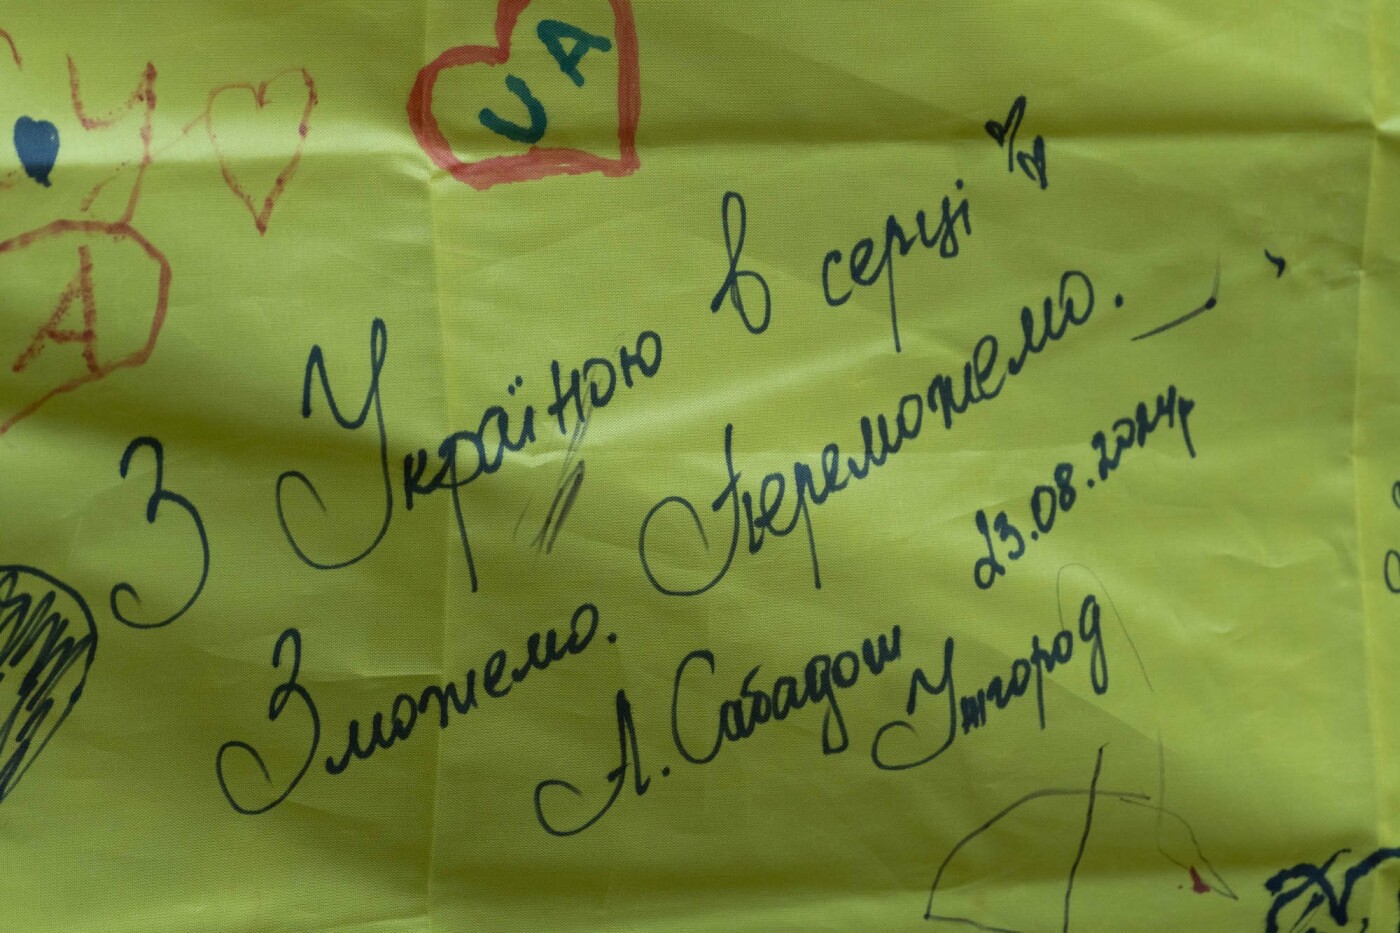 UA
У
А
З Україною в серці
Зможемо. Переможемо.
23.08.2024р
А. Сабадош
Ужгород